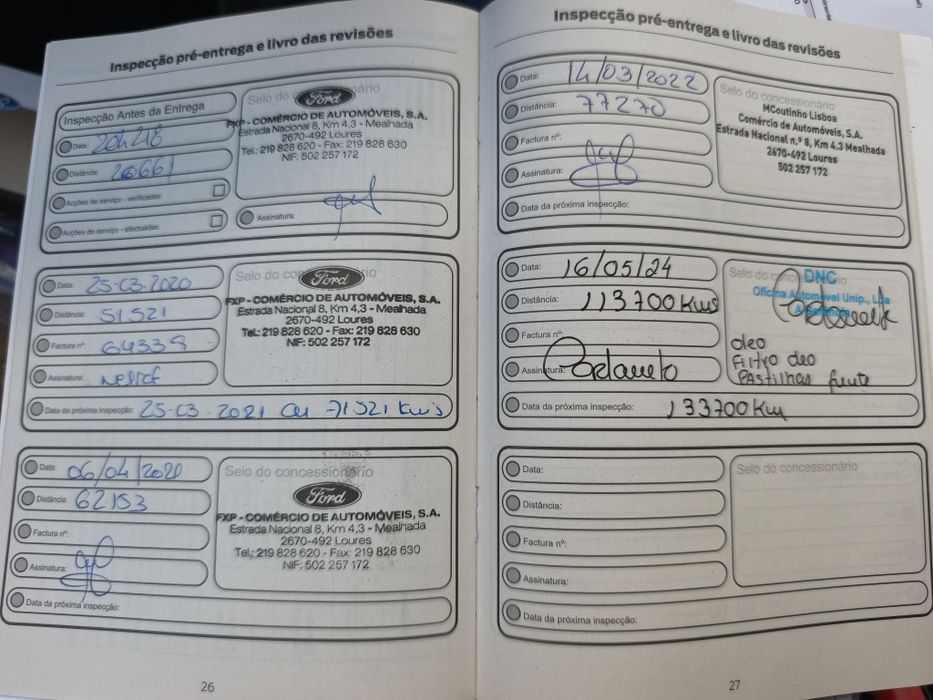 Inspecção pré-entrega e livro das revisões
Inspecção Antes da Entrega
Data:
Distância: 20661
Acções de serviço - verificadas:
Acções de serviço - efectuadas:
Selo do
Ford
FXP - COMÉRCIO DE AUTOMÓVEIS, S.A.
Estrada Nacional 8, Km 4,3 - Mealhada
2670-492 Loures
Tel.: 219 828 620 - Fax: 219 828 630
NIF: 502 257 172
Assinatura:
Data: 25-03-2020
Distância: 51521
Factura nº: 64339
Assinatura:
Selo do concessionário
Ford
FXP - COMÉRCIO DE AUTOMÓVEIS, S.A.
Estrada Nacional 8, Km 4,3 - Mealhada
2670-492 Loures
Tel.: 219 828 620 - Fax: 219 828 630
NIF: 502 257 172
Data da próxima inspecção: 25-03-2021 ou 71521 Kms
Data: 06/04/
Distância: 62153
Factura nº:
Assinatura:
Selo do concessionário
Ford
FXP - COMÉRCIO DE AUTOMÓVEIS, S.A.
Estrada Nacional 8, Km 4,3 - Mealhada
2670-492 Loures
Tel.: 219 828 620 - Fax: 219 828 630
NIF: 502 257 172
Data da próxima inspecção:
26
Inspecção pré-entrega e livro das revisões
Data: 14/03/2022
Distância: 77270
Factura nº:
Assinatura:
Selo do concessionário
MCoutinho Lisboa
Comércio de Automóveis, S.A.
Estrada Nacional n.º 8, Km 4.3 Mealhada
2670-492 Loures
502 257 172
Data da próxima inspecção:
Data: 16/05/24
Distância: 113700 Kms
Factura nº:
Assinatura:
Selo do concessionário
DNC
Oficina Automóvel Unip., Lda
oleo
Filtro oleo
Pastilhas frente
Data da próxima inspecção: 133700 Km
Data:
Distância:
Factura nº:
Assinatura:
Selo do concessionário
Data da próxima inspecção:
27